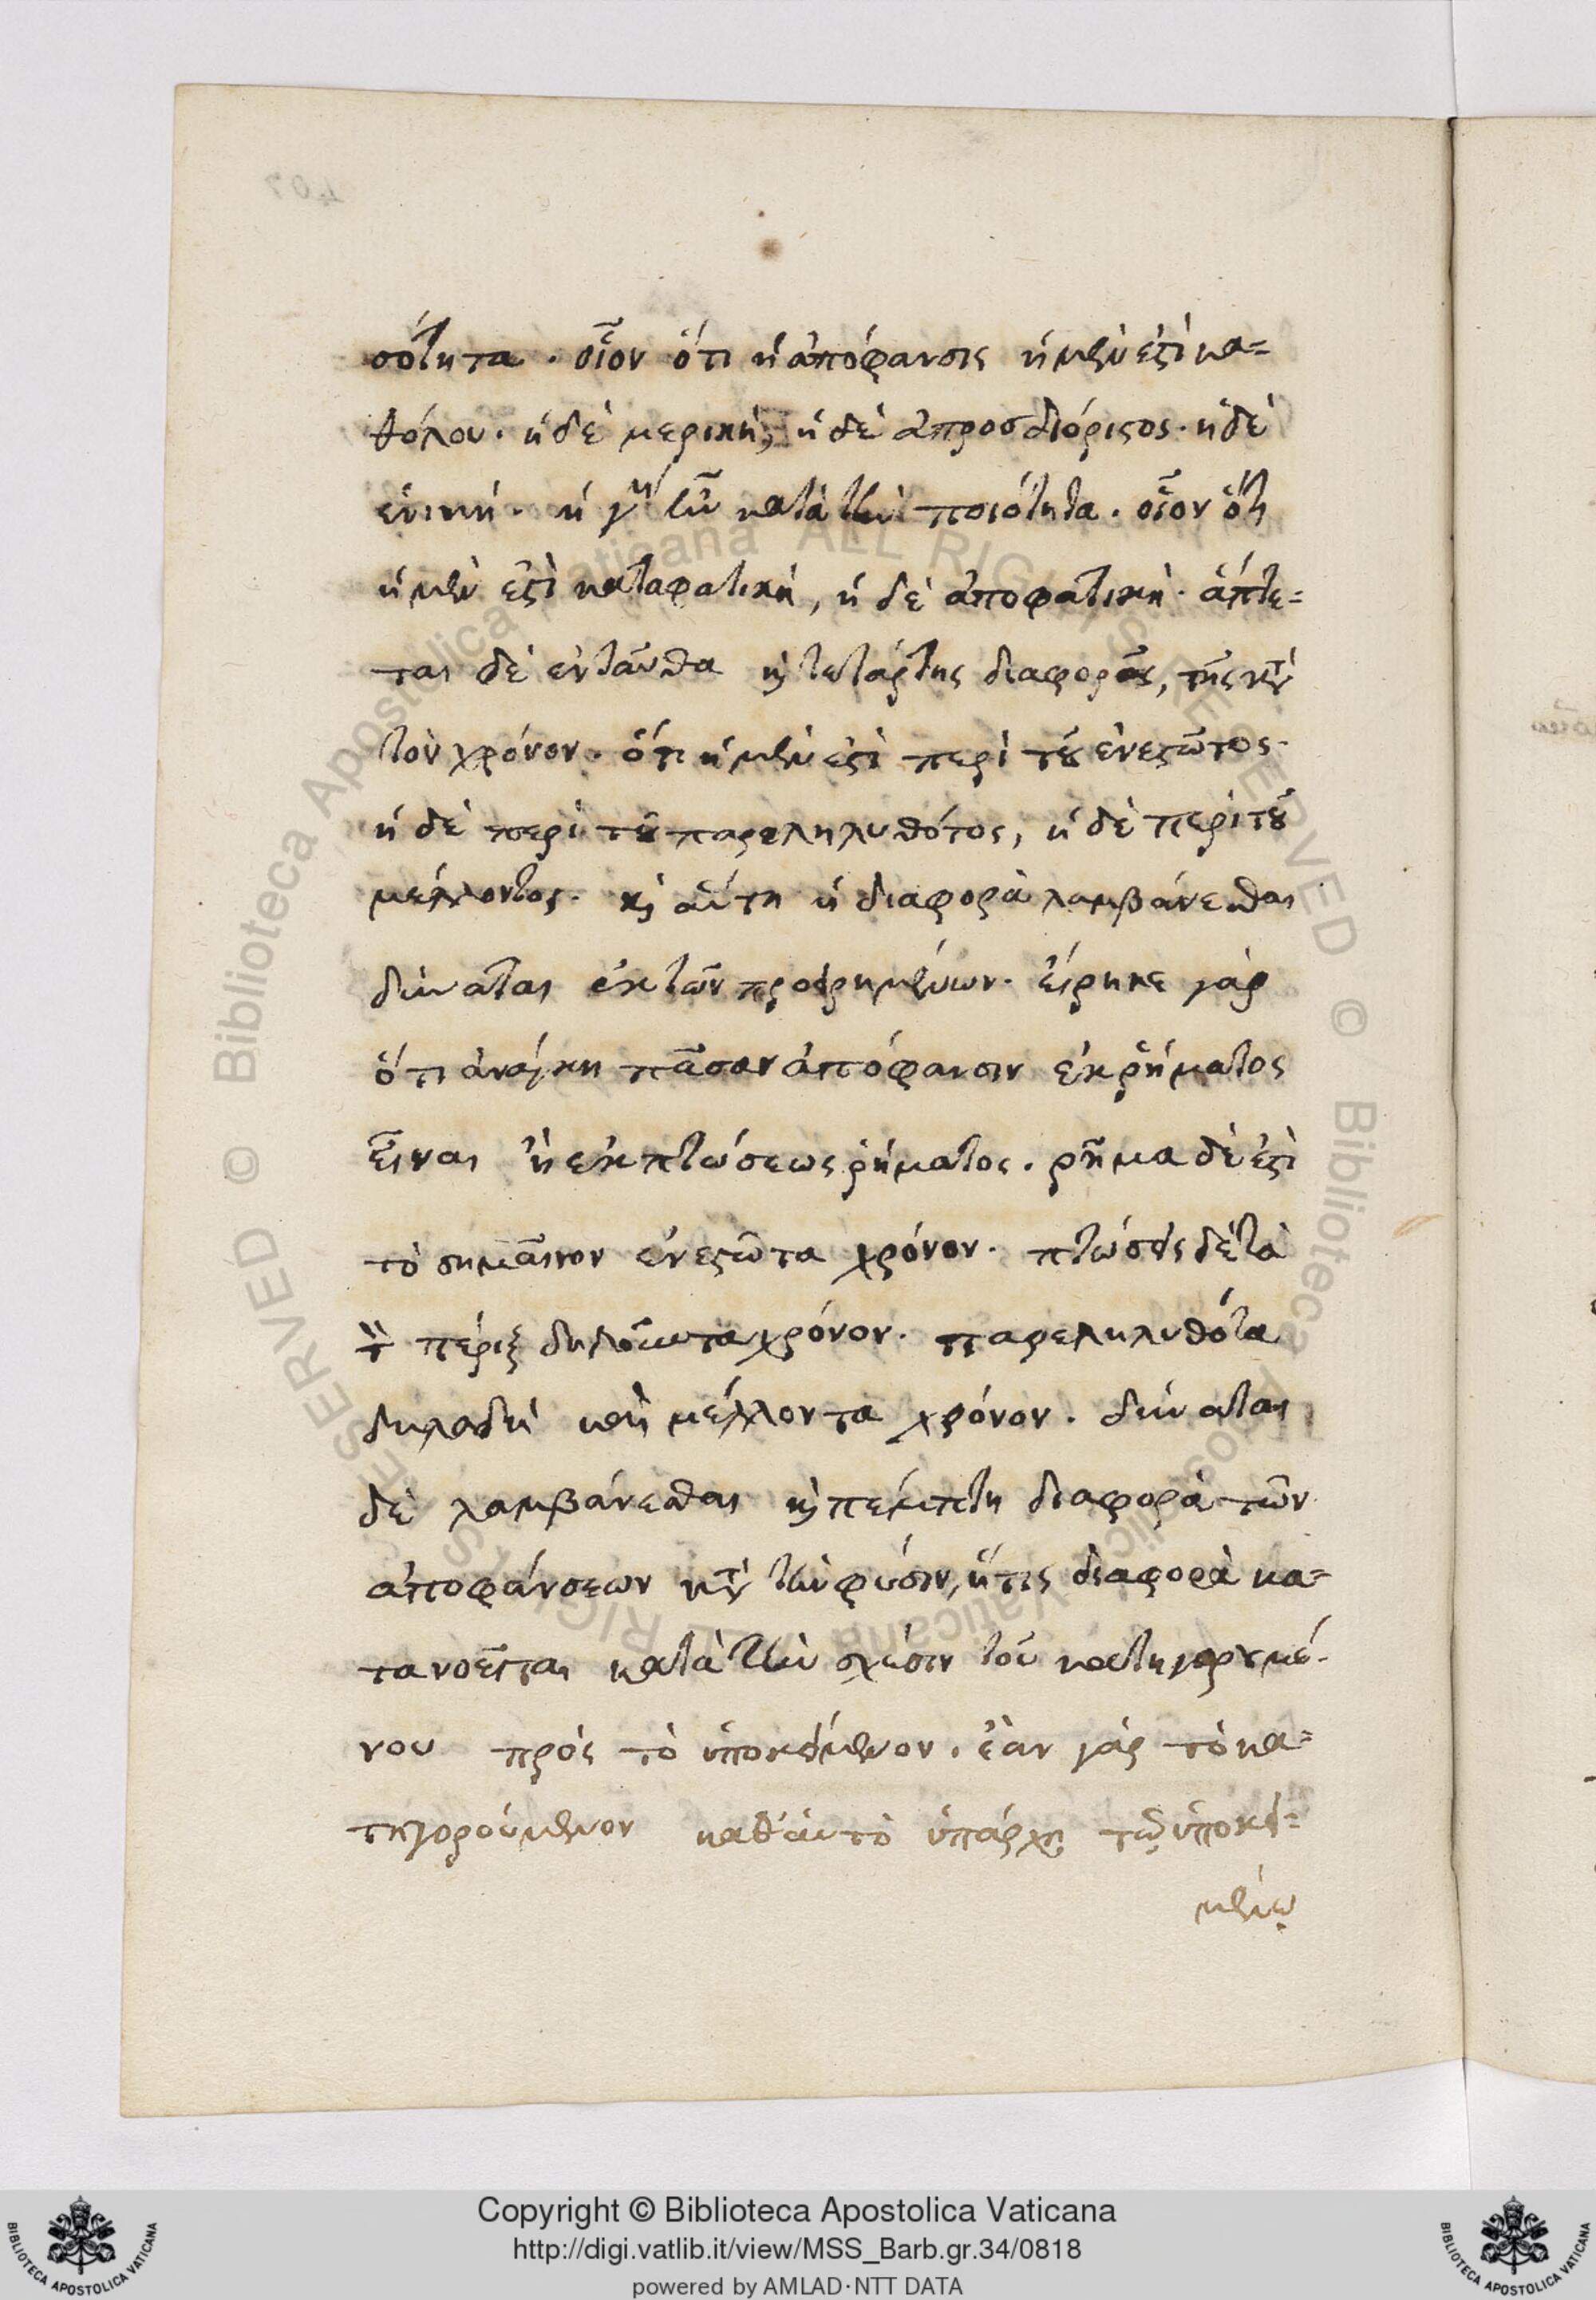 σότητα. οἷον ὅτι ἡ ἀπόφανσις ἡ μὲν ἐστὶ κα=
θόλου. ἡ δὲ μερικὴ, ἡ δὲ ἀπροσδιόριστος. ἡ δὲ
ἑνικὴ. ἡ γ´ κατὰ τὴν ποιότητα. οἷον ὅτι
ἡ μὲν ἐστὶ καταφατικὴ, ἡ δὲ ἀποφατικὴ. ἅπτε=
ται δὲ ἐνταῦθα κὶ τετάρτης διαφορᾶς, τῆς κατὰ
τὸν χρόνον. ὅτι ἡ μὲν ἐστὶ περὶ τοῦ ἐνεστῶτος.
ἡ δὲ περὶ τοῦ παρεληλυθότος, ἡ δὲ περὶ τοῦ
μέλλοντος. κὶ αὕτη ἡ διαφορὰ λαμβάνεσθαι
δύναται ἐκ τῶν προειρημένων. εἴρηκε γὰρ
ὅτι ἀνάγκη πᾶσαν ἀπόφανσιν ἐκ ῥήματος
εἶναι ἢ ἐκ πτώσεως ῥήματος. ῥῆμα δὲ ἐστὶ
τὸ σημαῖνον ἐνεστῶτα χρόνον. πτώσεις δὲ τὰ
τὸν πέριξ δηλοῦντα χρόνον. παρεληλυθότα
δηλαδὴ καὶ μέλλοντα χρόνον. δύναται
δὲ λαμβάνεσθαι κὶ πέμπτη διαφορὰ τῶν
ἀποφάνσεων κατὰ τὴν φύσιν, ἥτις διαφορὰ κα=
τανοεῖται κατὰ τὴν σχέσιν τοῦ κατηγορουμέ-
νου πρὸς τὸ ὑποκείμενον. ἐὰν γὰρ τὸ κα=
τηγορούμενον καθ' αὑτὸ ὑπάρχῃ τῷ ὑποκει=
μένῳ
Copyright © Biblioteca Apostolica Vaticana
http://digi.vatlib.it/view/MSS_Barb.gr.34/0818
powered by AMLAD·NTT DATA